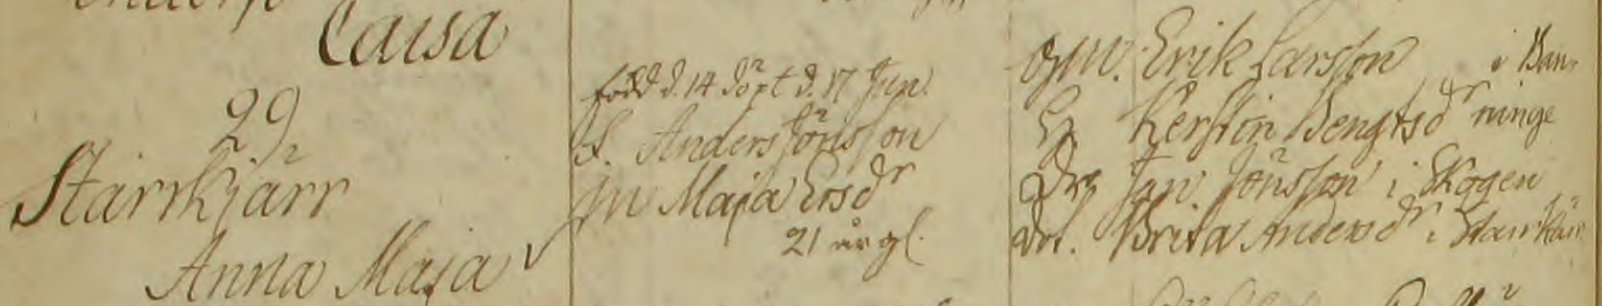 Caisa
29
Starrkjärr
Anna Maja
född d. 14 döpt d. 17 Jun
F. Anders Jönsson
M Maja Ersdr
21 år gl.
Erik Larsson i Ban-
Kerstin Bengtsdr ninge
Drg Jan Jönsson i Skogen
Brita Andersdr i Starrkärr